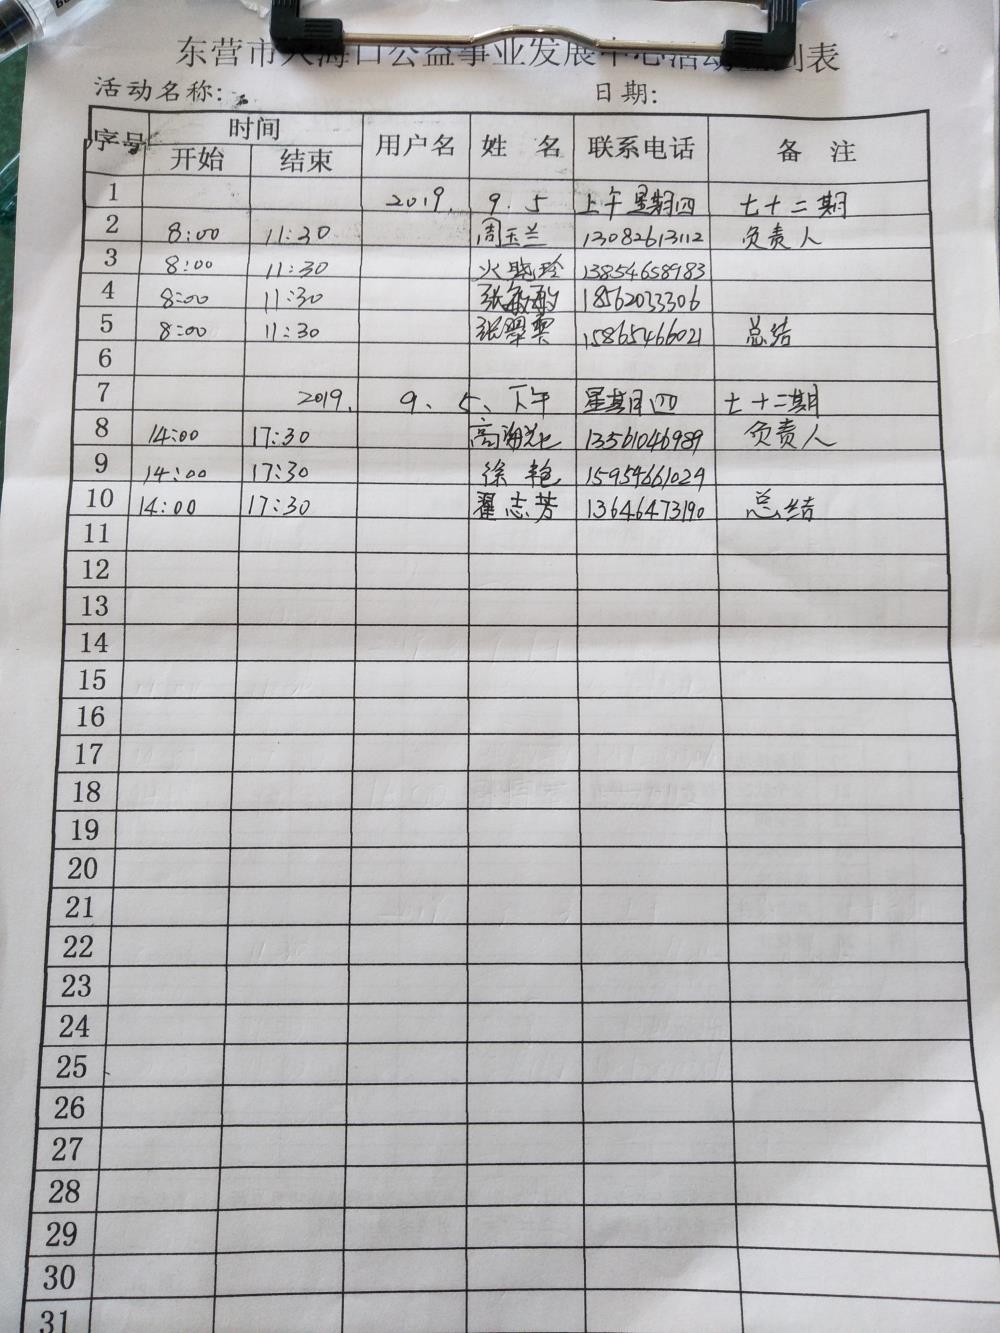 东营市大海口公益事业发展中心活动签到表
活动名称: 日期:
序号 时间 用户名 姓 名 联系电话 备 注
开始 结束
1 2019. 9. 5 上午 星期四 七十二期
2 8:00 11:30 周玉兰 13082613112 负责人
3 8:00 11:30 火晓玲 13854658983
4 8:00 11:30 张 18562033306
5 8:00 11:30 张翠 15865466021 总结
6
7 2019. 9、5、下午 星期四 七十二期
8 14:00 17:30 高海 13561046989 负责人
9 14:00 17:30 徐艳 15954661029
10 14:00 17:30 翟志芳 13646473190 总结
11
12
13
14
15
16
17
18
19
20
21
22
23
24
25
26
27
28
29
30
31